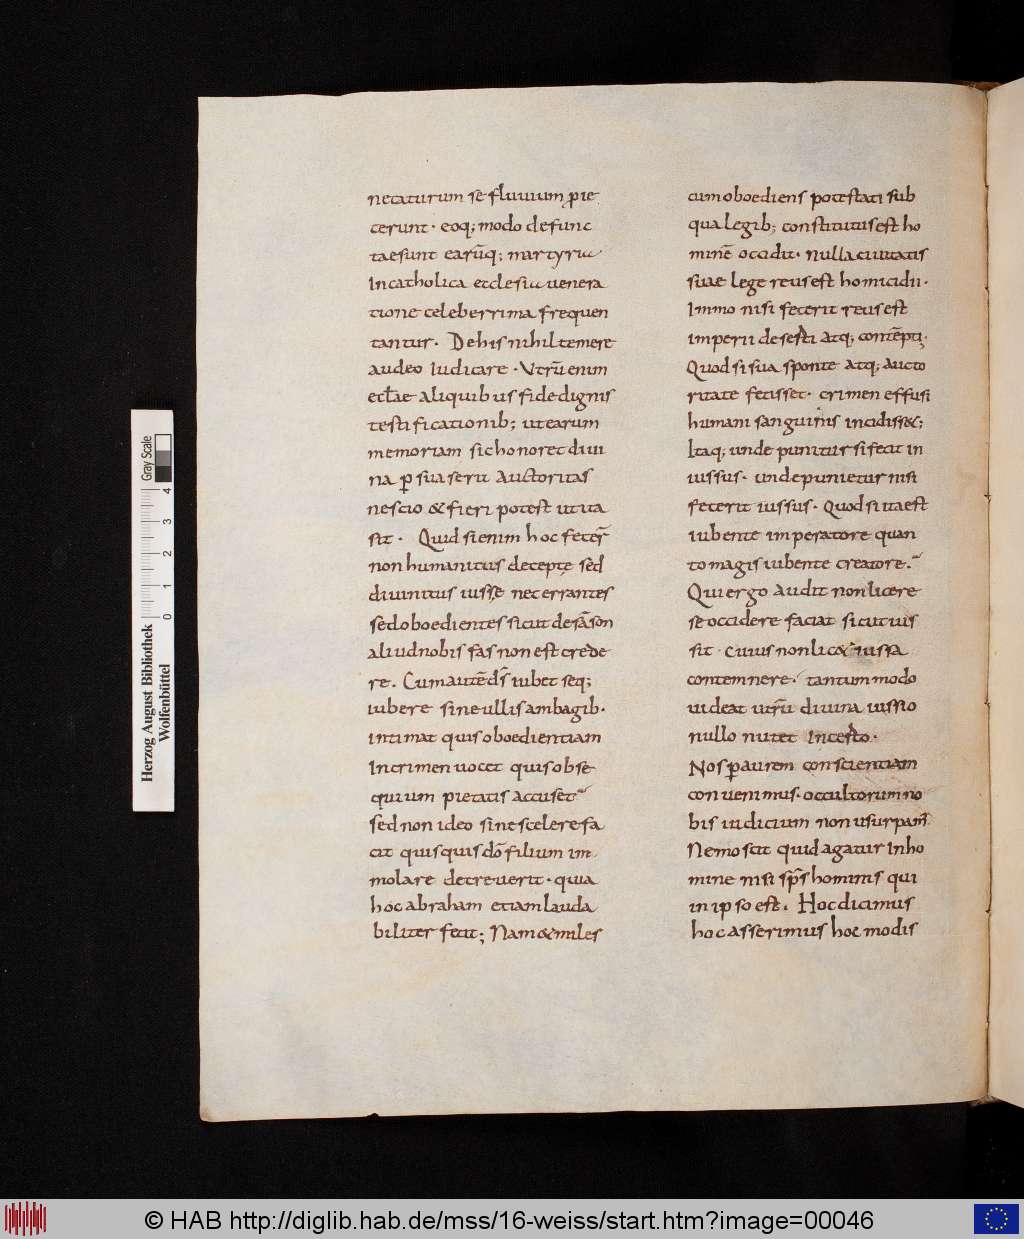 necaturum se fluuium, pie
cerunt· eoq; modo defunc
taesunt earūq; martyria
In catholica ecclesia uenera
tione celeberrima frequen
tantur. De his nihil temere
audeo Iudicare. Vtrū enim
eccl̄ae aliquibus fide dignis
testificationib; ut earum
memoriam sic honoret diui
na ꝑsuaserit Auctoritas
nescio & fieri potest ut ita
sit. Quid si enim hoc fecer̄
non humanitus decepte sed
diuinitus iusse nec errantes
sed oboedientes sicut desāson
aliud nobis fas non est crede
re. Cum autē d̄s iubet seq;
iubere sine ullis ambagib·
intimat quis oboedientiam
In crimen uocet quis obse
quium pietatis accuset
sed non ideo sine scelere fa
cit quisquis dō filium im
molare decreuerit· quia
hoc abraham etiam lauda
biliter fecit; Nam & miles
cum oboediens potestati sub
qua legib; constitutus est ho
minē occidit· nulla ciuitatis
suae lege reus est homicidii·
Immo nisi fecerit reus est
imperii deserti atq; contēpti·
Quod si sua sponte atq; aucto
ritate fecisset· crimen effusi
humani sanguinis incidiss&;
Itaq; unde punitur si fecit in
iussus· unde punietur nisi
fecerit iussus· Quod si ita est
iubente imperatore quan
to magis iubente creatore.
Qui ergo audit non licere
se occidere faciat si cut uis
sit· cuius non lic& iussa
contemnere· tantum modo
uideat utrū diuina iussio
nullo nutet Incerto·
Nos ꝑ aurem conscientiam
conuenimus· occultorum no
bis iudicium non usurpam̄
Nemo scit quid agatur In ho
mine nisi sp̄s hominis qui
in ipso est. Hoc dicimus
hoc asserimus hoc modis
Herzog August Bibliothek
Wolfenbüttel
Gray Scale
0 1 2 3 4
© HAB http://diglib.hab.de/mss/16-weiss/start.htm?image=00046